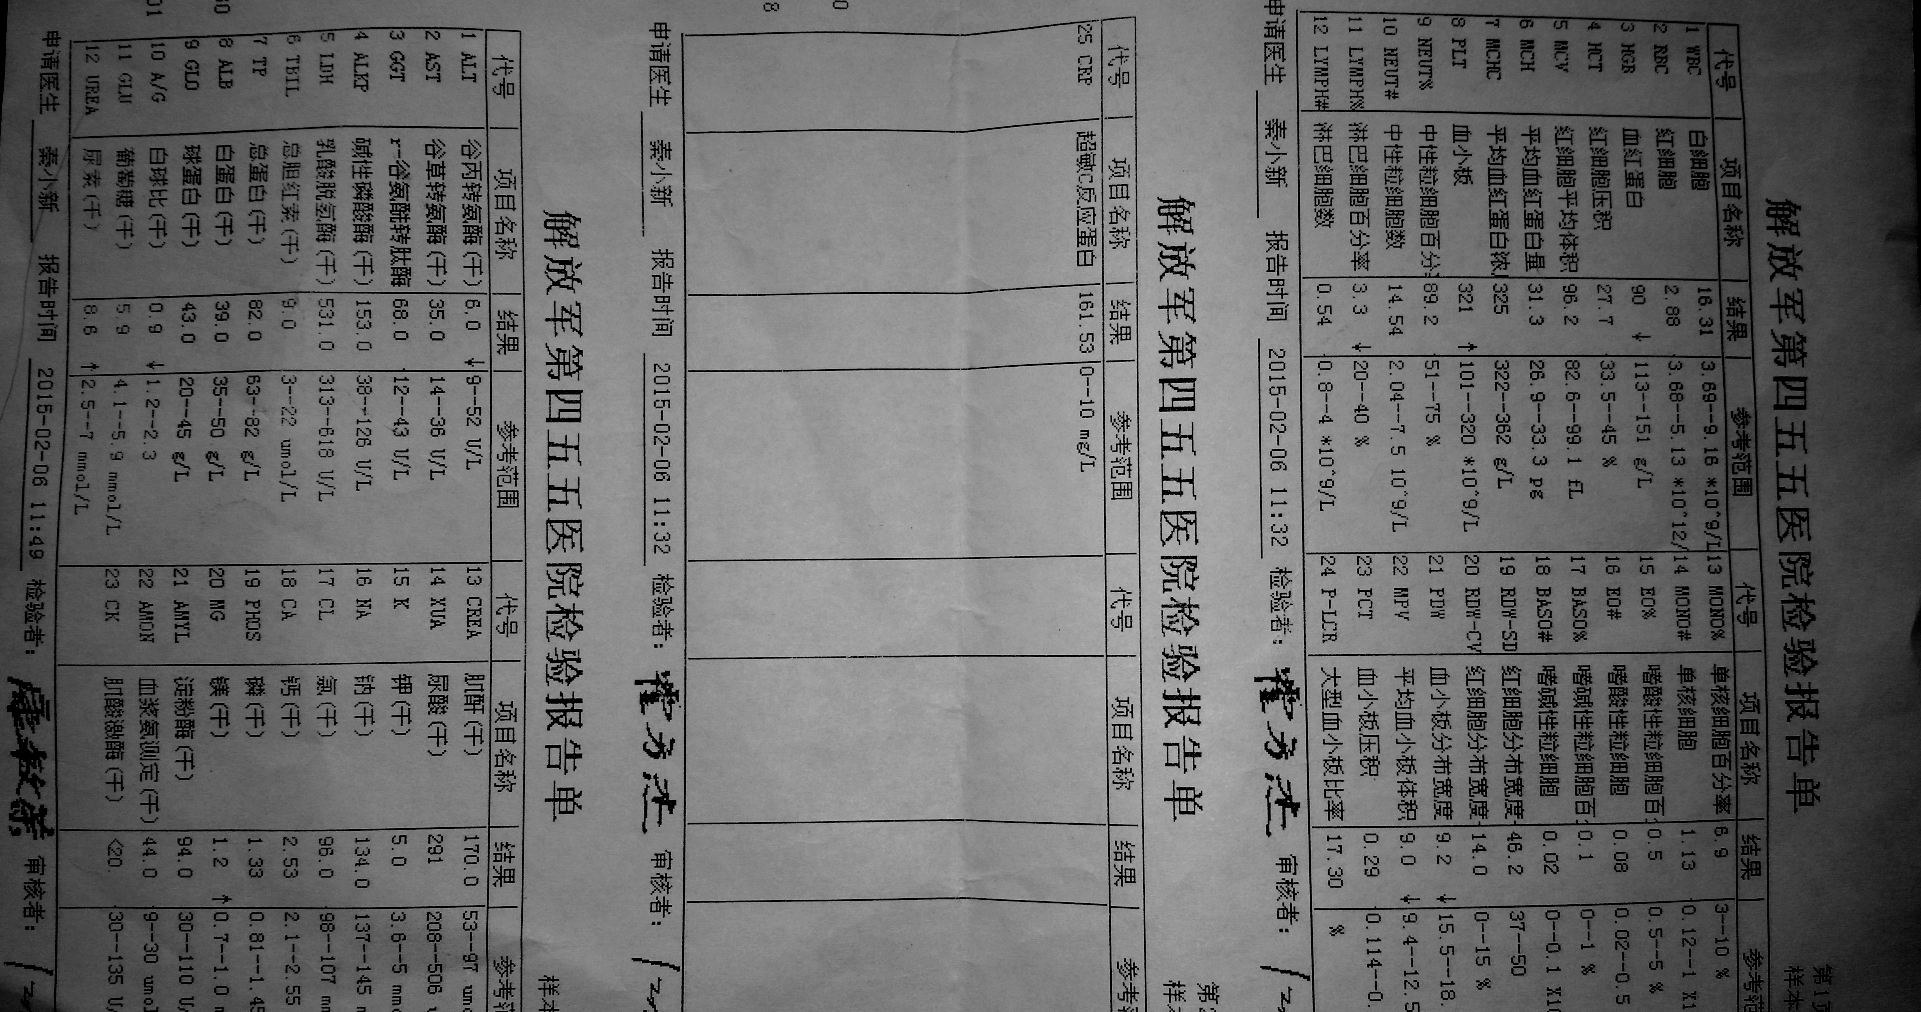 解放军第四五五医院检验报告单
第1页
样本
代号 项目名称 结果 参考范围 代号 项目名称 结果 参考范
1 WBC 白细胞 16.31 3.69--9.16 *10^9/L 13 MONO% 单核细胞百分率 6.9 3--10 %
2 RBC 红细胞 2.88 3.68--5.13 *10^12/ 14 MONO# 单核细胞 1.13 0.12--1 X1
3 HGB 血红蛋白 90 ↓ 113--151 g/L 15 EO% 嗜酸性粒细胞百 0.5 0.5--5 %
4 HCT 红细胞压积 27.7 33.5--45 % 16 EO# 嗜酸性粒细胞 0.08 0.02--0.5
5 MCV 红细胞平均体积 96.2 82.6--99.1 fL 17 BASO% 嗜碱性粒细胞百 0.1 0--1 %
6 MCH 平均血红蛋白量 31.3 26.9--33.3 pg 18 BASO# 嗜碱性粒细胞 0.02 0--0.1 X10
7 MCHC 平均血红蛋白浓 325 322--362 g/L 19 RDW-SD 红细胞分布宽度- 46.2 37--50
8 PLT 血小板 321 ↑ 101--320 *10^9/L 20 RDW-CV 红细胞分布宽度- 14.0 0--15 %
9 NEUT% 中性粒细胞百分 89.2 51--75 % 21 PDW 血小板分布宽度 9.2 ↓ 15.5--18.
10 NEUT# 中性粒细胞数 14.54 2.04--7.5 10^9/L 22 MPV 平均血小板体积 9.0 ↓ 9.4--12.5
11 LYMPH% 淋巴细胞百分率 3.3 ↓ 20--40 % 23 PCT 血小板压积 0.29 0.114--0.
12 LYMPH# 淋巴细胞数 0.54 0.8--4 *10^9/L 24 P-LCR 大型血小板比率 17.30 %
申请医生 秦小新 报告时间 2015-02-06 11:32 检验者: 审核者:
解放军第四五五医院检验报告单
第
样本
代号 项目名称 结果 参考范围 代号 项目名称 结果 参考
25 CRP 超敏C反应蛋白 161.53 0--10 mg/L
申请医生 秦小新 报告时间 2015-02-06 11:32 检验者: 审核者:
解放军第四五五医院检验报告单
样本
代号 项目名称 结果 参考范围 代号 项目名称 结果 参考范
1 ALT 谷丙转氨酶(干) 6.0 ↓ 9--52 U/L 13 CREA 肌酐(干) 170.0 53--97 umo
2 AST 谷草转氨酶(干) 35.0 14--36 U/L 14 XUA 尿酸(干) 291 208--506
3 GGT r-谷氨酰转肽酶 68.0 12--43 U/L 15 K 钾(干) 5.0 3.6--5 mmo
4 ALKP 碱性磷酸酶(干) 153.0 38--126 U/L 16 NA 钠(干) 134.0 137--145 m
5 LDH 乳酸脱氢酶(干) 531.0 313--618 U/L 17 CL 氯(干) 96.0 98--107 mm
6 TBIL 总胆红素(干) 9.0 3--22 umol/L 18 CA 钙(干) 2.53 2.1--2.55
7 TP 总蛋白(干) 82.0 63--82 g/L 19 PHOS 磷(干) 1.33 0.81--1.45
8 ALB 白蛋白(干) 39.0 35--50 g/L 20 MG 镁(干) 1.2 ↑ 0.7--1.0 m
9 GLO 球蛋白(干) 43.0 20--45 g/L 21 AMYL 淀粉酶(干) 94.0 30--110 U/
10 A/G 白球比(干) 0.9 ↓ 1.2--2.3 22 AMON 血浆氨测定(干) 44.0 9--30 umol
11 GLU 葡萄糖(干) 5.9 4.1--5.9 mmol/L 23 CK 肌酸激酶(干) <20. 30--135 U/
12 UREA 尿素(干) 8.6 ↑ 2.5--7 mmol/L
申请医生 秦小新 报告时间 2015-02-06 11:49 检验者: 审核者: